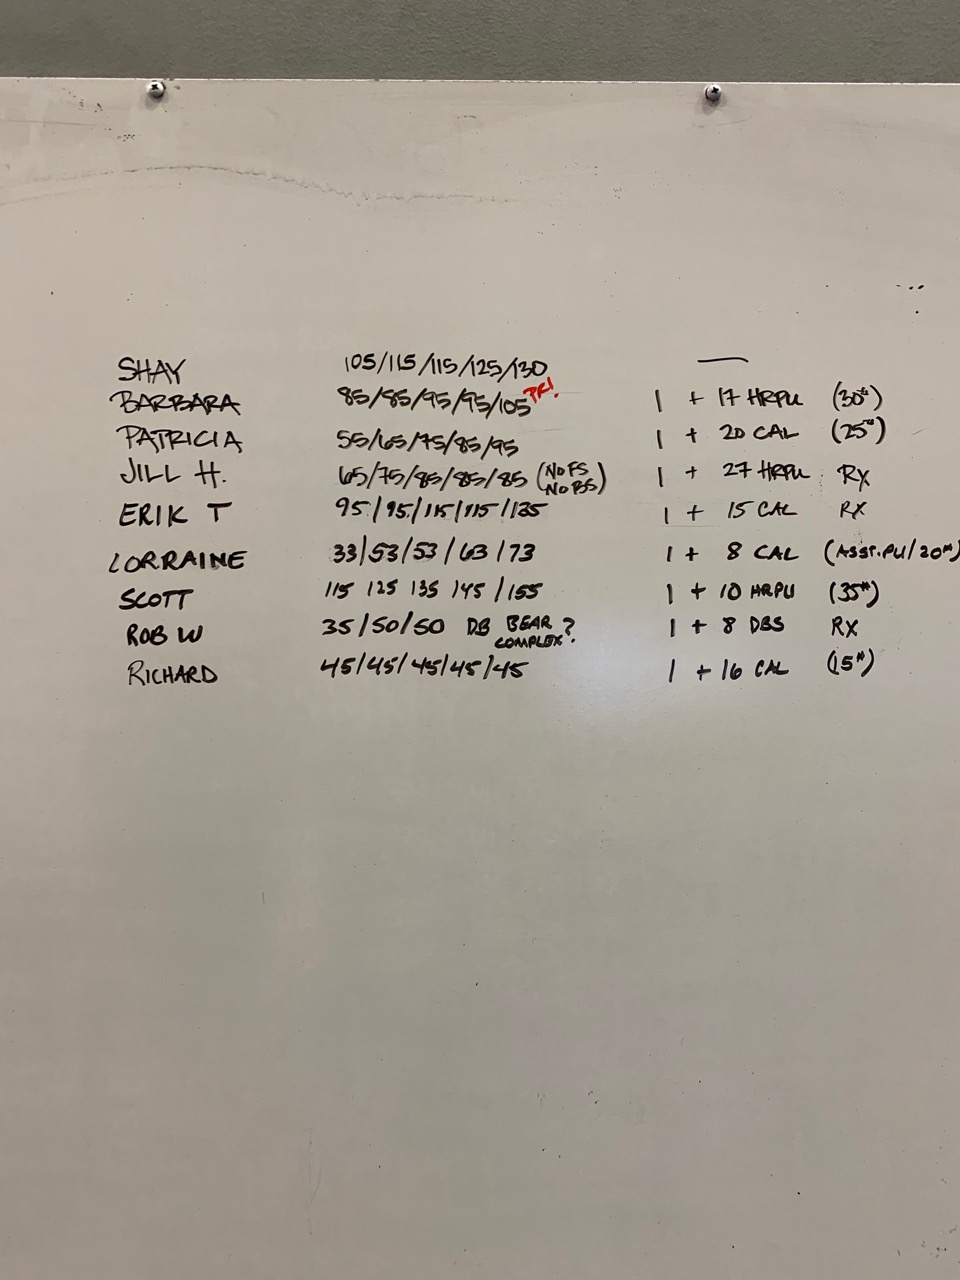 SHAY 105/115/115/125/130 —
BARBARA 85/85/95/95/105 PR! 1 + 17 HRPU (30#)
PATRICIA 55/65/75/85/95 1 + 20 CAL (25#)
JILL H. 65/75/85/85/85 (NO FS NO BS) 1 + 27 HRPU RX
ERIK T 95/95/115/115/135 1 + 15 CAL RX
LORRAINE 33/53/53/63/73 1 + 8 CAL (ASST. PU/20#)
SCOTT 115 125 135 145/155 1 + 10 HRPU (35#)
ROB W 35/50/50 DB BEAR COMPLEX? 1 + 8 DBS RX
RICHARD 45/45/45/45/45 1 + 16 CAL (15#)